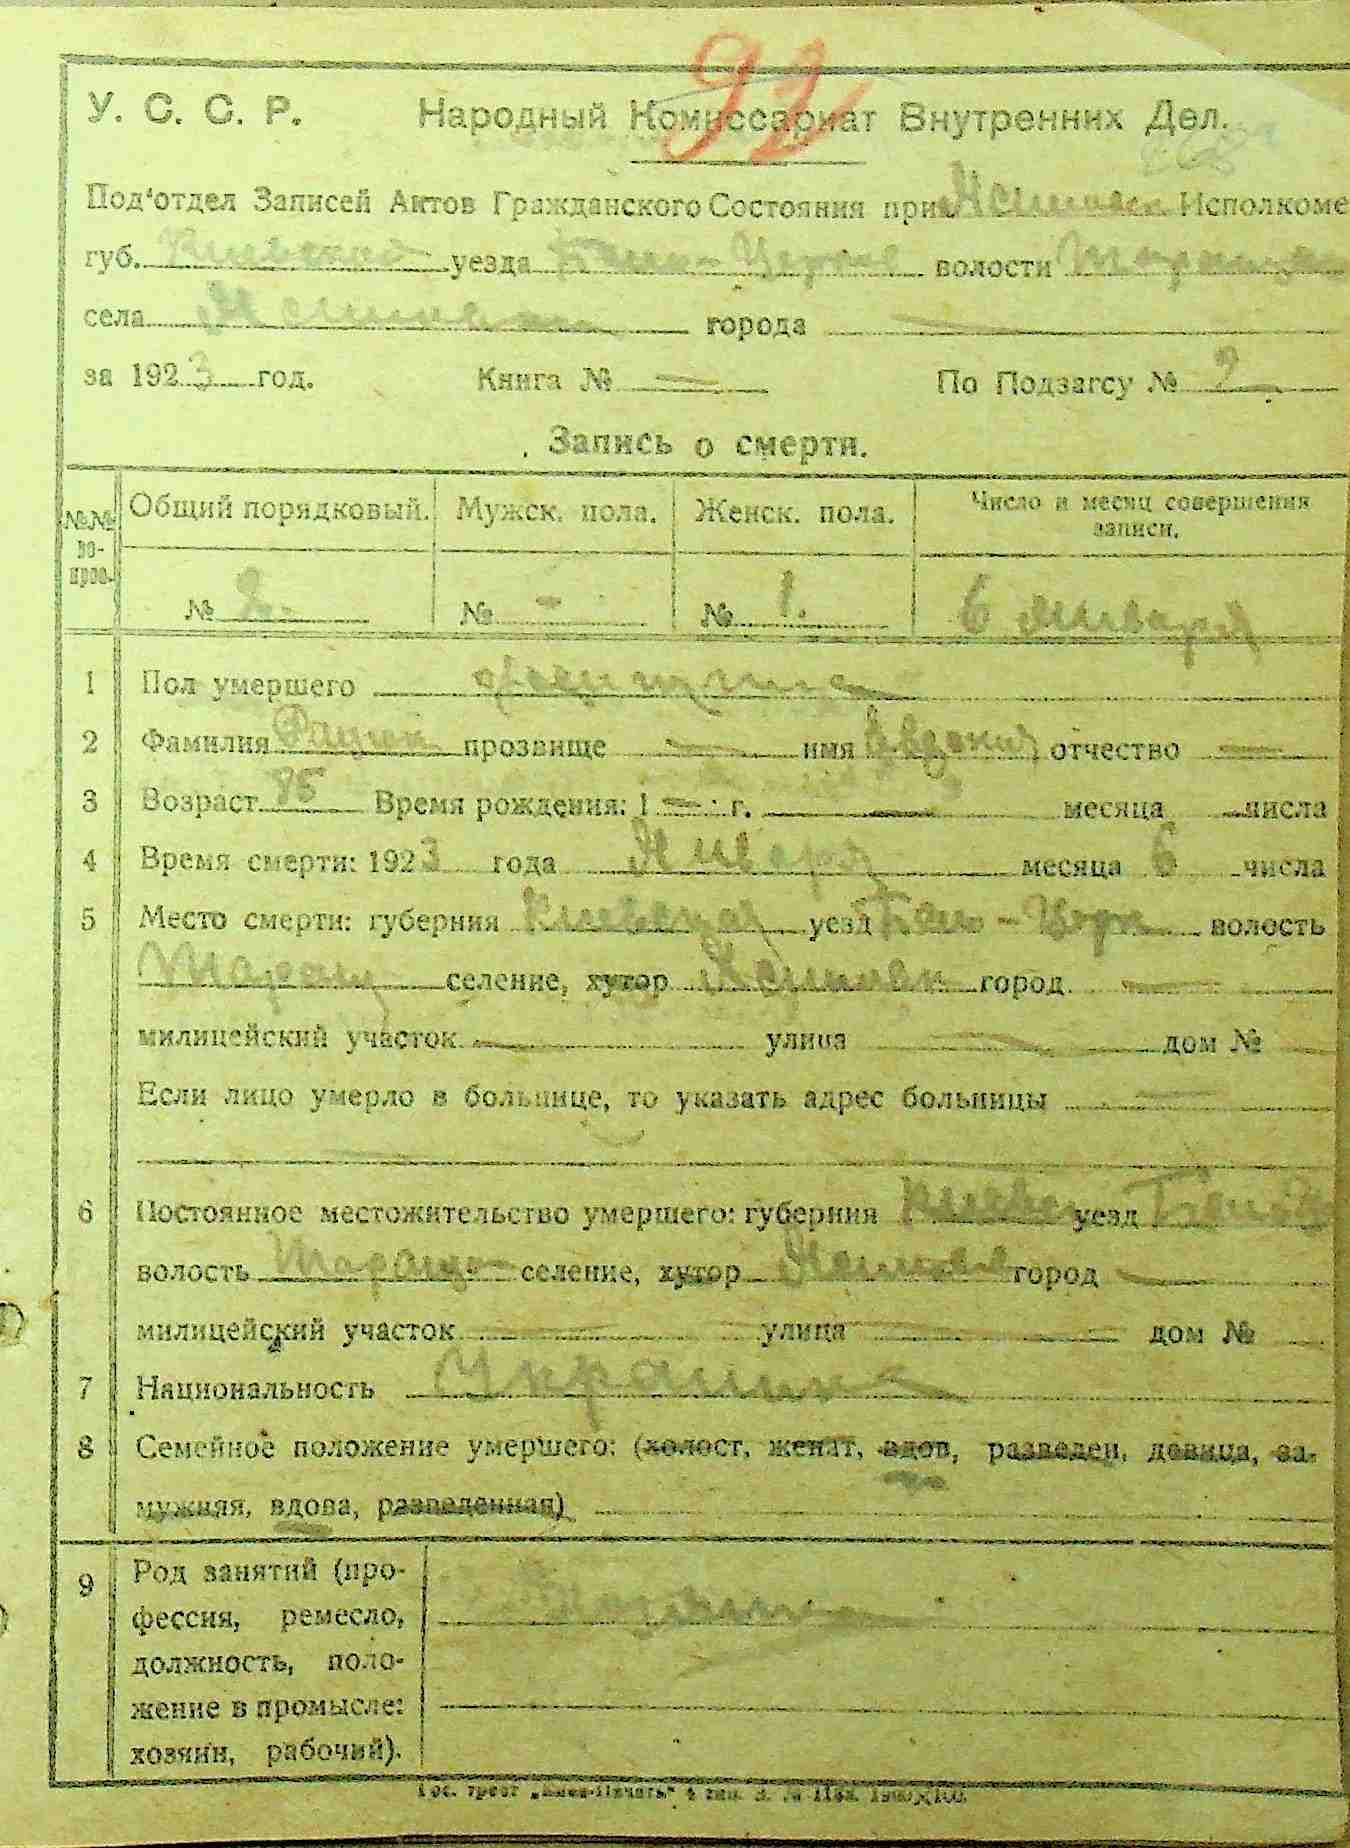 92
У. С. С. Р. Народный Комиссариат Внутренних Дел.
Под'отдел Записей Актов Гражданского Состояния при Исполкоме
губ. Киевской уезда Бело-Церк волости Таращан
села города —
за 1923 год. Книга № — По Подзагсу №
Запись о смерти.
№№ во-прос. Общий порядковый. Мужск. пола. Женск. пола. Число и месяц совершения записи.
№ 2. № - № 1. 6 января
1 Пол умершего
2 Фамилия прозвище — имя Евдокия отчество —
3 Возраст 85 Время рождения: 1 — г. — месяца — числа
4 Время смерти: 1923 года Января месяца 6 числа
5 Место смерти: губерния Киевская уезд волость
Таращ селение, хутор город —
милицейский участок — улица — дом № —
Если лицо умерло в больнице, то указать адрес больницы —
6 Постоянное местожительство умершего: губерния Киевск уезд
волость Таращ селение, хутор город —
милицейский участок — улица — дом №
7 Национальность Украинка
8 Семейное положение умершего: (холост, женат, вдов, разведен, девица, за-
мужняя, вдова, разведенная)
9 Род занятий (про-
фессия, ремесло,
должность, поло-
жение в промысле:
хозяин, рабочий).